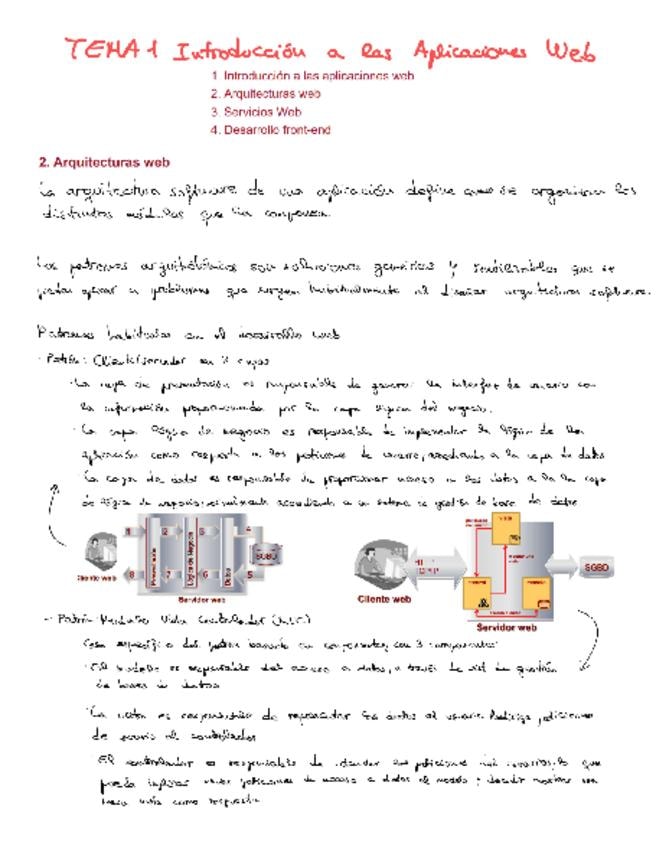 TEMA 1 Introducción a las Aplicaciones Web
1. Introducción a las aplicaciones web
2. Arquitecturas web
3. Servicios Web
4. Desarrollo front-end
2. Arquitecturas web
La arquitectura software de una aplicación define como se organizan los
distintos módulos que la componen.
Los patrones arquitectónicos son soluciones genéricas y reutilizables que se
puedan aplicar a problemas que surgen habitualmente al diseñar arquitecturas software.
Patrones habituales en el desarrollo web
- Patrón: Cliente/servidor en 3 capas
· La capa de presentación es responsable de generar la interfaz de usuario con
la información proporcionada por la capa lógica del negocio.
· La capa lógica de negocio es responsable de implementar la lógica de la
aplicación como respuesta a las peticiones de usuario, accediendo a la capa de datos
La capa de datos es responsable de proporcionar acceso a los datos a la capa
de lógica de negocio, accediendo a un sistema de gestión de base de datos
1 2 3 4
Presentación
Lógica de Negocio
Datos
SGBD
8 7 6 5
Cliente web
Servidor web
HTTP
SGBD
Cliente web
Servidor web
- Patrón Modelo Vista Controlador (MVC)
Caso específico del patrón basado en componentes, con 3 componentes
· El modelo es responsable del acceso a datos, a través de la gestión
de bases de datos
· La vista es responsable de representar los datos al usuario peticiones
de usuario al controlador
El controlador es responsable de atender las peticiones del usuario, lo que
puede implicar peticiones de acceso a datos al modelo y decidir mostrar una
nueva vista como respuesta.